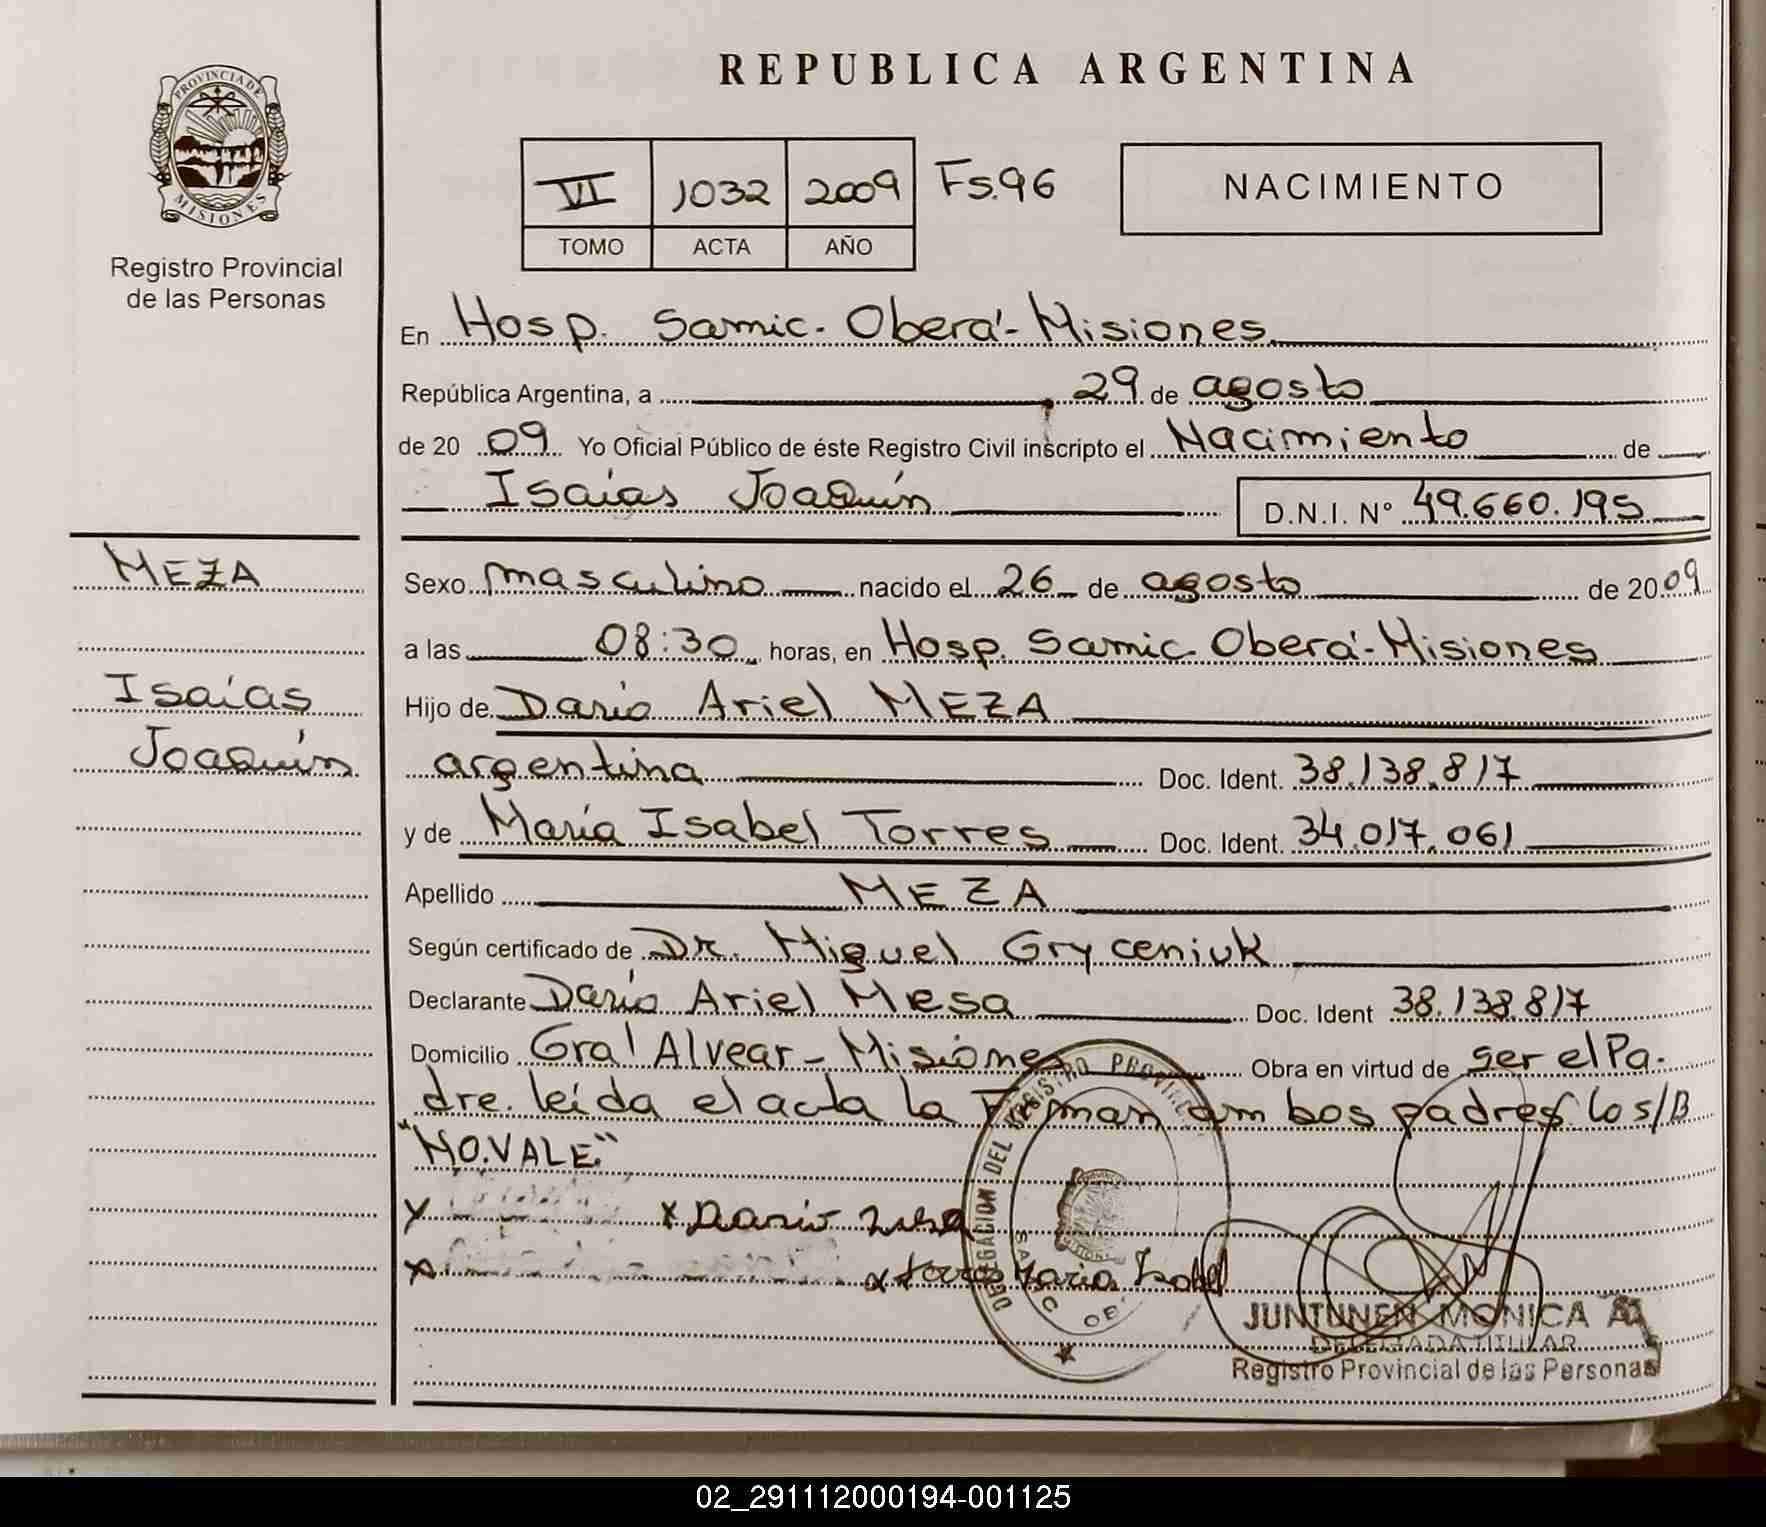 REPUBLICA ARGENTINA
PROVINCIA DE
MISIONES
Registro Provincial
de las Personas
VI 1032 2009 Fs.96
TOMO ACTA AÑO
NACIMIENTO
En Hosp. Samic. Oberá - Misiones
República Argentina, a 29 de agosto
de 20 09 Yo Oficial Público de éste Registro Civil inscripto el Nacimiento de
Isaías Joaquín D.N.I. N° 49.660.195
MEZA
Isaías
Joaquín
Sexo masculino nacido el 26 de agosto de 20 09
a las 08:30 horas, en Hosp. Samic. Oberá - Misiones
Hijo de Darío Ariel MEZA
argentina Doc. Ident. 38.138.817
y de María Isabel Torres Doc. Ident. 34.017.061
Apellido MEZA
Según certificado de Dr. Miguel Gryceniuk
Declarante Darío Ariel Mesa Doc. Ident 38.138.817
Domicilio Gral Alvear - Misiones Obra en virtud de ser el Pa-
dre. leída el acta la Firman ambos padres. lo s/B
"NO.VALE."
x x Dario
x x Torres Maria Isabel
DELEGACION DEL REGISTRO PROVINCIAL
JUNTUNEN MONICA
DELEGADA TITULAR
Registro Provincial de las Personas
02_291112000194-001125